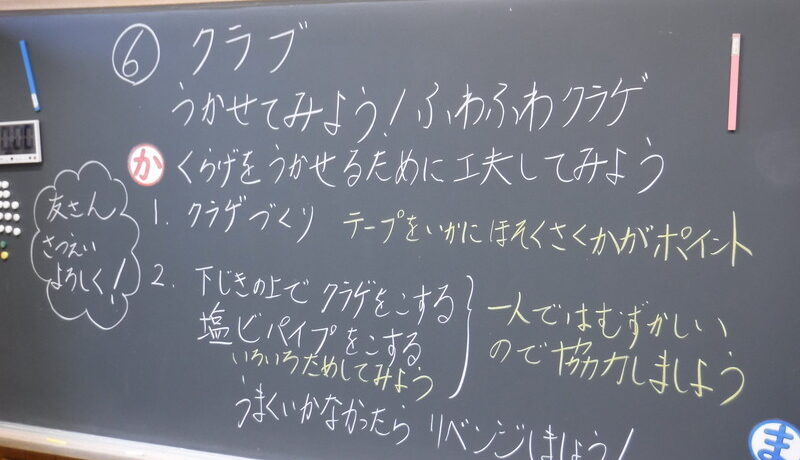 ⑥ クラブ
うかせてみよう!ふわふわクラゲ
か くらげをうかせるために工夫してみよう
友さん
さつえい
よろしく!
1. クラゲづくり テープをいかにほそくさくかがポイント
2. 下じきの上でクラゲをこする
塩ビパイプをこする
いろいろためしてみよう
一人ではむずかしい
ので協力しましょう
うまくいかなかったら リベンジしましょう!
ま